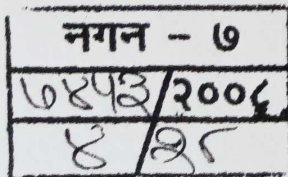 नगन - ७
७४५३/२००६
४/२८